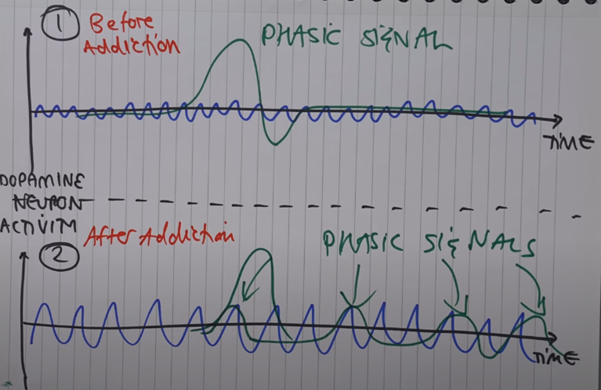 1 Before
Addiction
PHASIC SIGNAL
TIME
DOPAMINE
NEURON
ACTIVITY
2 After Addiction
PHASIC SIGNALS
TIME